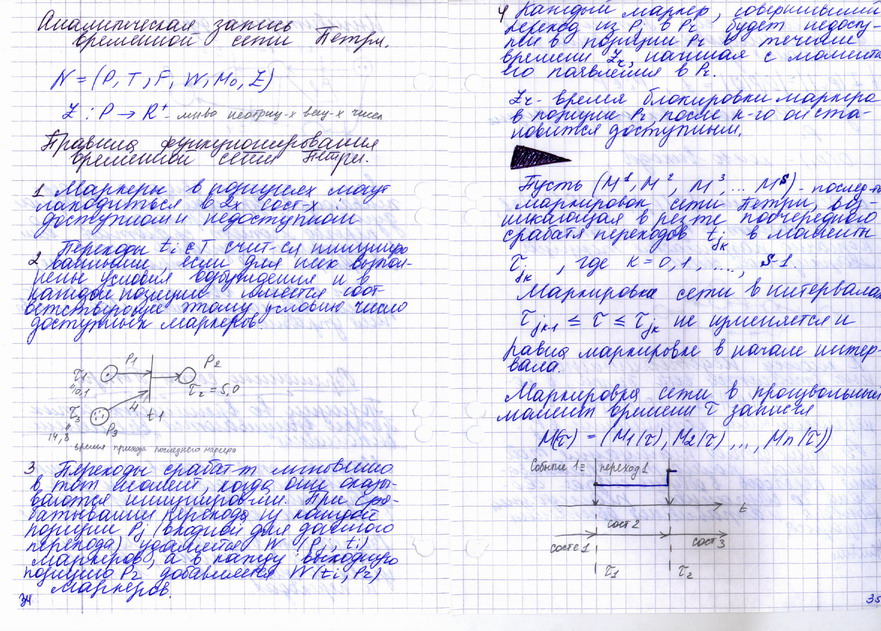 Аналитическая запись
временной сети Петри.
N = (P, T, F, W, M₀, Z)
Z : P → R⁺ - мн-во неотриц-х вещ-х чисел
Правила функционирования
временной сети Петри.
1 Маркеры в позициях могут
находиться в 2х сост-х:
доступном и недоступном
2 Переходы ti ∈ T счит-ся
если для них выпол-
нены условия возбуждения и в
каждой позиции имеется соот-
ветствующее этому условию число
доступных маркеров
τ1 P1 P2
"10,1 τ2 = 5,0
τ3 4 t1
"14,8 P3
время прихода последнего маркера
3. Переходы срабат-т мгновенно
в тот момент, когда они оказы-
ваются При сра-
батывании перехода из каждой
позиции Pj (входной для данного
перехода) удаляется W (Pj, ti)
маркеров, а в каждую выходную
позицию Pr добавляется W(ti, Pr)
маркеров.
34
4 Каждый маркер, совершивший
переход из Pj в Pr будет недосту-
пен в позиции Pr в течение
времени Zr, начиная с момента
его появления в Pr.
Zr - время блокировки маркера
в позиции Pr, после к-го он ста-
новится доступным.
Пусть (M¹, M², M³, ... Mˢ) - послед-ть
маркировок сети Петри, воз-
никающая в рез-те поочередного
срабат-я переходов tjk в моменты
τjk, где k = 0, 1, ...., s-1.
Маркировка сети в интервалах
τjk-1 ≤ τ ≤ τjk не изменяется и
равна маркировке в начале интер-
вала.
Маркировка сети в произвольный
момент времени τ запис-ся
M(τ) = (M1(τ), M2(τ), ..., Mn(τ))
Событие 1 ≡ переход 1
t
сост 2
сост 1 сост 3
τ1 τ2
35